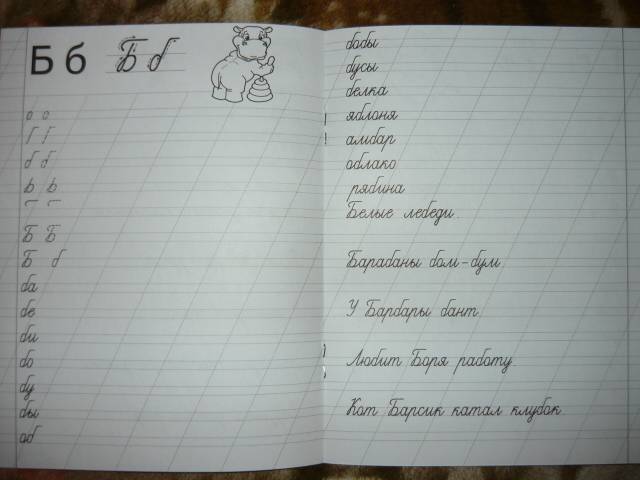 Б б Б б
о о
б б
ь ь
Б Б
Б б
ба
бе
би
бо
бу
бы
об
бобы
бусы
белка
яблоня
амбар
облако
рябина
Белые лебеди.
Барабаны бом-бум.
У Барбары бант.
Любит Боря работу.
Кот Барсик катал клубок.